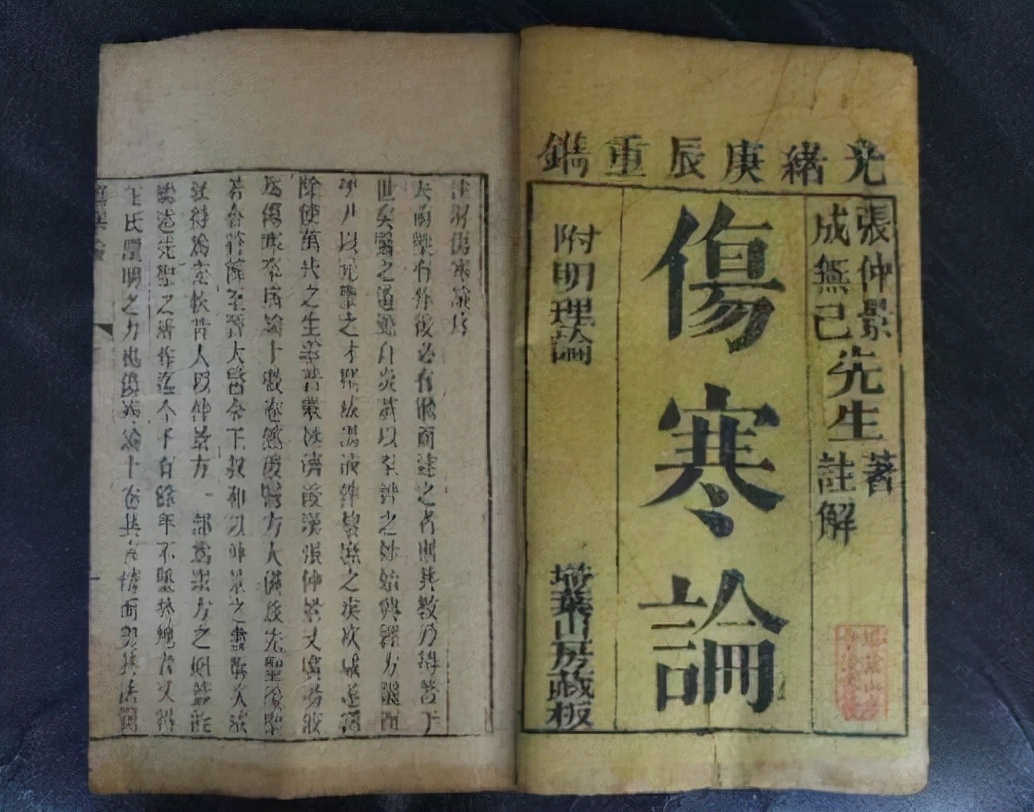 光緒庚辰重鐫
張仲景先生著
成無己先生註解
傷寒論
附明理論
埽葉山房藏板
註解傷寒論序
夫前聖有作後必有繼而述之者則其教乃得著于
世矣醫之道源自炎黃以至神之妙始興經方繼而
伊尹以元聖之才撰成湯液俾黎庶之疾疚咸遂蠲
除使萬代之生靈普蒙拯濟後漢張仲景又廣湯液
為傷寒卒病論十數卷然後醫方大備茲先聖後聖
若合符節至晉太醫令王叔和以仲景之書撰次成
敘得為完帙昔人以仲景方一部為眾方之祖蓋能
繼述先聖之所作迄今千有餘年不墜於地者又得
王氏闡明之力也傷寒論十卷其言精而奧其法簡